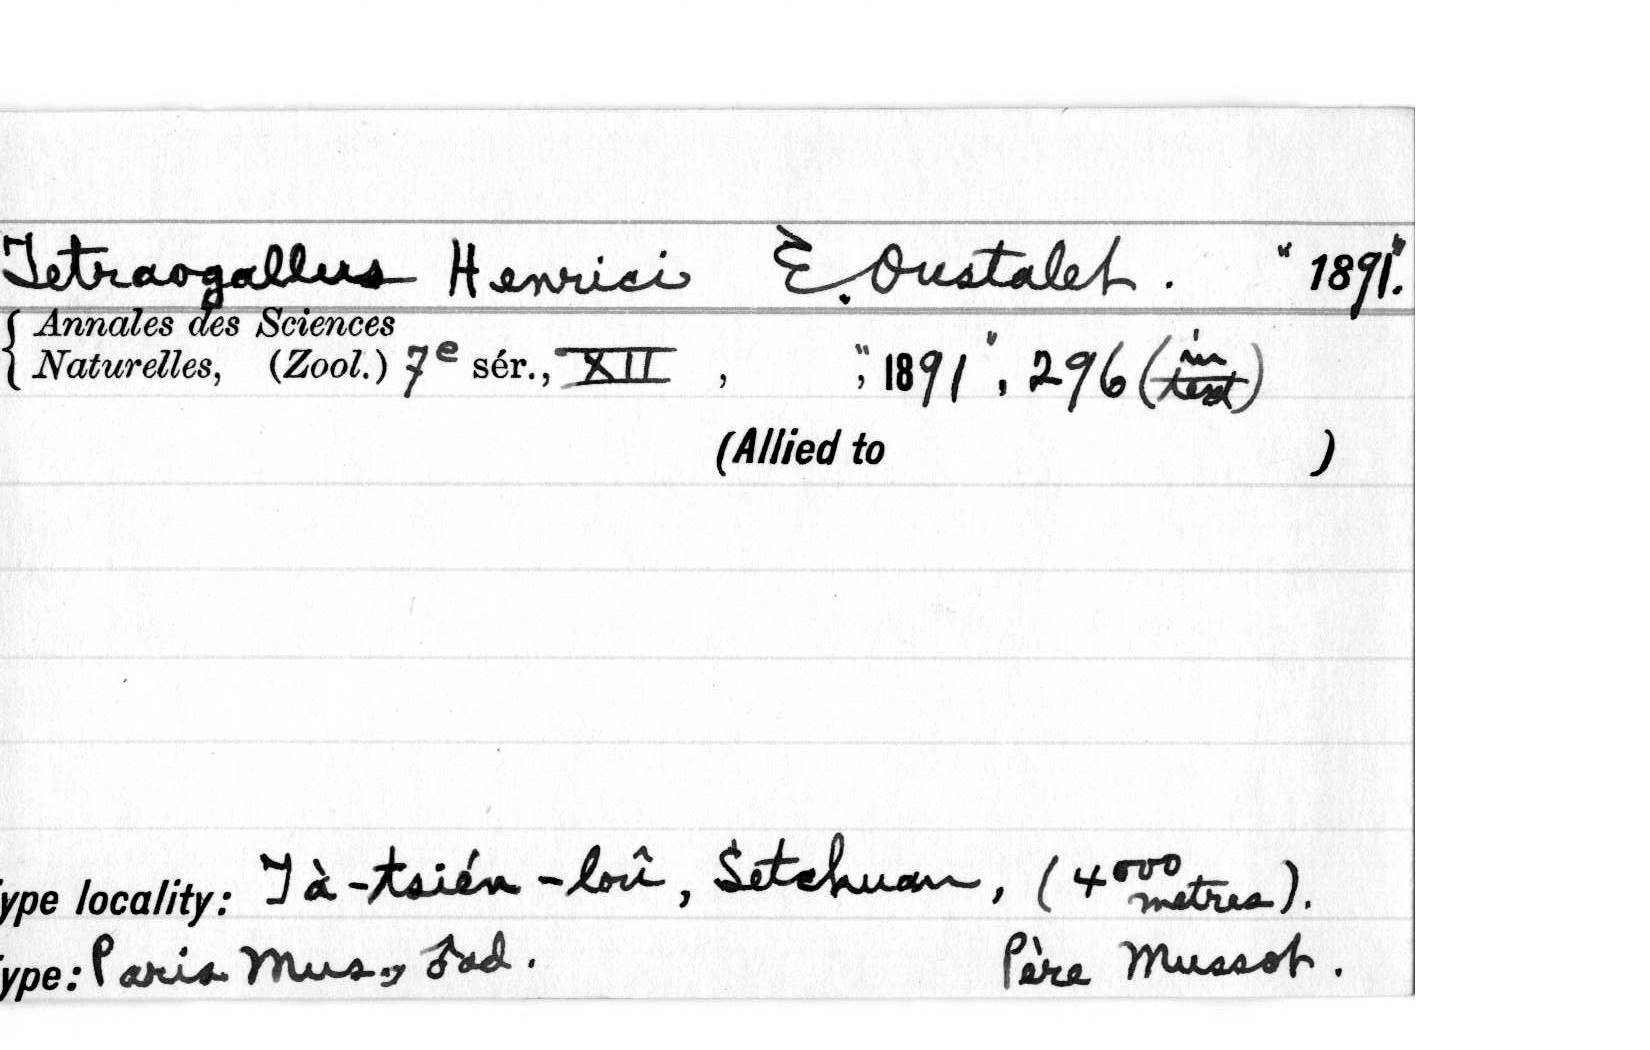 Tetraogallus Henrici É. Oustalet. "1891".
Annales des Sciences
Naturelles, (Zool.) 7e sér., XII , ; "1891", 296 (in text)
(Allied to )
ype locality: Tà-tsién-loû, Setchuan, (4000 metres).
ype: Paris Mus., ♂ad. Père Mussot.